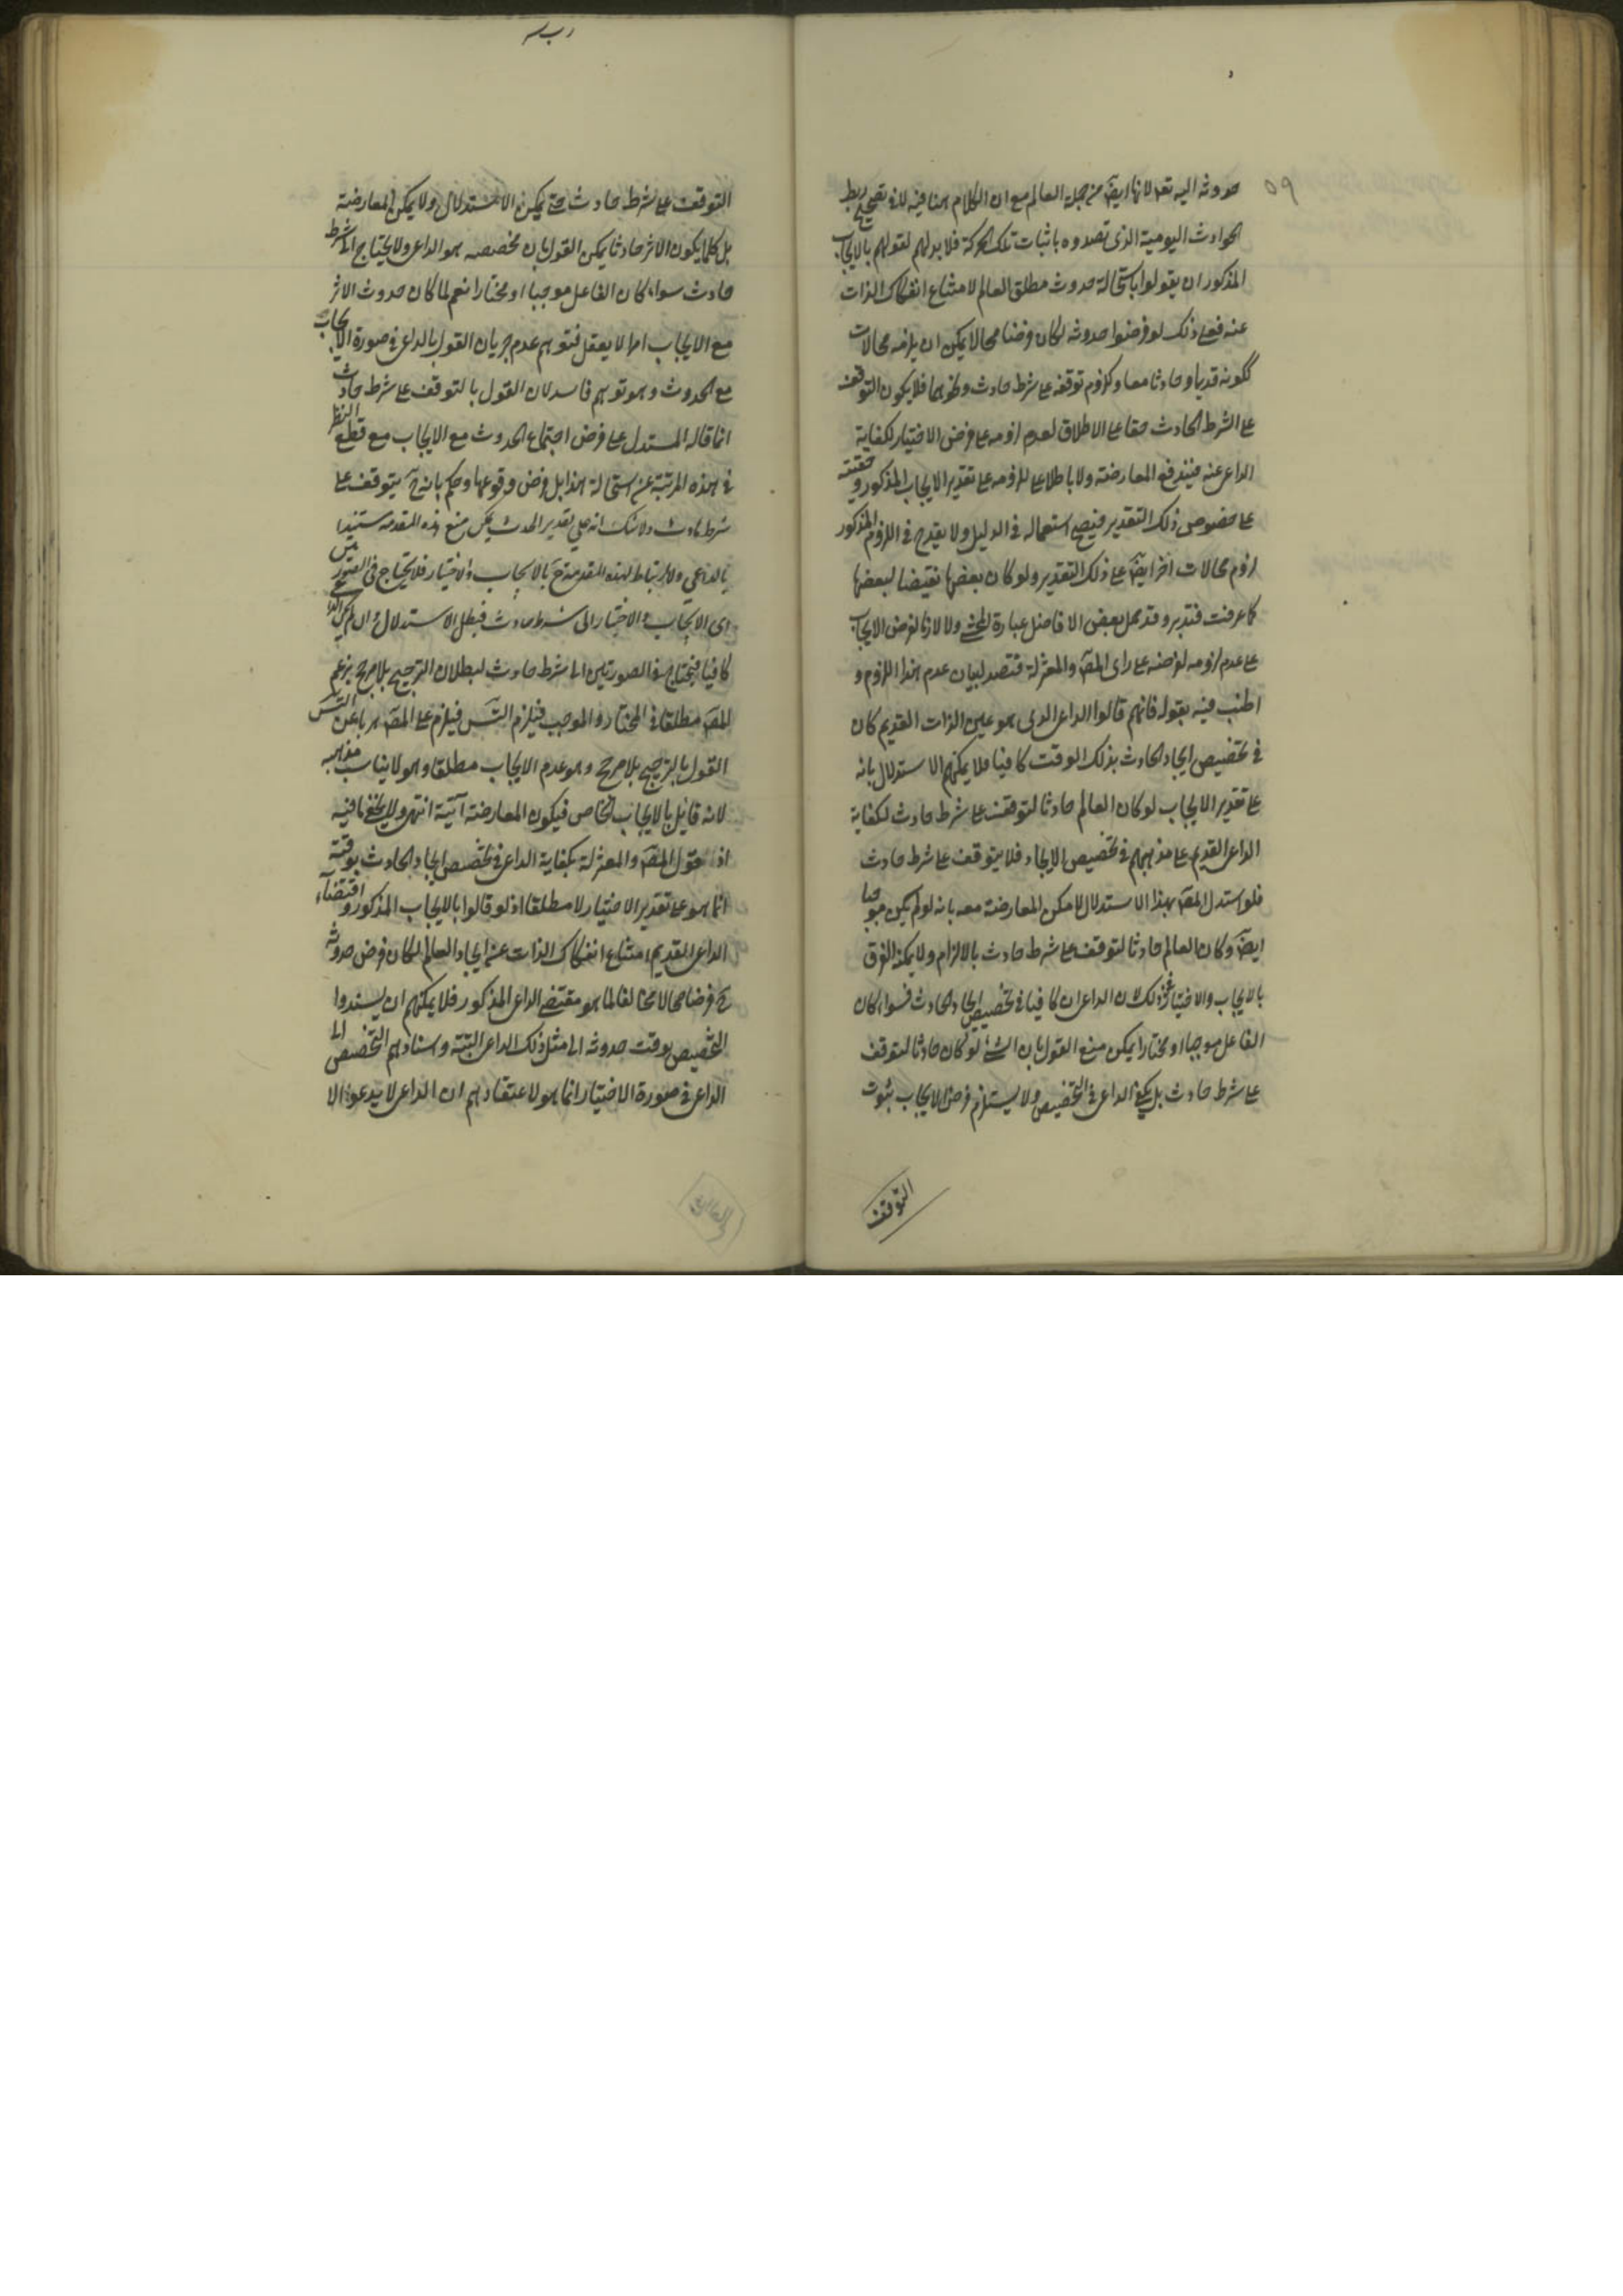 ٥٩
حدوثه اليه تعـ لانها ايضـ من جملة العالم مع ان الكلام ههنا فيه لان تصحيح ربط
الحوادث اليومية الذى تصدوه باثبات تلك الحركة فلا بد لهم لقولهم بالايجاب
المذكور ان يقولوا باستحالة حدوث مطلق العالم لامتناع انفكاك الذات
عنه فعلى ذلك لو فرضوا حدوثه لكان فرضا محالا يمكن ان يلزمه محالات
ككونه قديما وحادثا معا وكلزوم توقفه على شرط حادث ونحوهما فلا يكون التوقف
على الشرط الحادث حقا على الاطلاق لعدم لزومه على فرض الاختيار لكفاية
الداعى عنه فيندفع المعارضة ولا باطلا على للزومه على تقدير الايجاب المذكور وحقيته
على خصوص ذلك التقدير فيصح استعماله فى الدليل ولا يقدح فى اللزوم المذكور
لزوم محالات اخر ايضـ على ذلك التقدير ولو كان بعضها نقيضا لبعضها
كما عرفت فتدبر وقد حمل بعض الافاضل عبارة المحشى ولا لازما لفرض الايجاب
على عدم لزومه لفرضه على راى المصـ والمعتزلة فتصد لبيان عدم هذا اللزوم و
اطنب فيه بقوله فانهم قالوا الداعى الذى هو عين الذات القديم كان
فى تخصيص ايجاد الحادث بذلك الوقت كافيا فلا يمكنهم الاستدلال بانه
على تقدير الايجاب لو كان العالم حادثا لتوقف على شرط حادث لكفاية
الداعى القديم على مذهبهم فى تخصيص الايجاد فلا يتوقف على شرط حادث
فلو استدل المصـ بهذا الاستدلال لامكن المعارضة معه بانه لو لم يكن موجبا
ايضـ وكان العالم حادثا لتوقف على شرط حادث بالالزام ولا يمكنه الفرق
بالايجاب والاختيار فى ذلك لان الداعى ان كافيا فى تخصيص ايجاد الحادث فسواء كان
الفاعل موجبا او مختارا يمكن منع القول بان الشئ لو كان حادثا لتوقف
على شرط حادث بل يكفى الداعى فى التخصيص ولا يستلزم فرض الايجاب بثبوت
التوقف
التوقف على شرط حادث حتى يمكن الاستدلال ولا يمكن المعارضة
بل كلما يكون الاثر حادثا يمكن القول بان مخصصه هو الداعى ولا يحتاج الى شرط
حادث سواء كان الفاعل موجبا او مختارا نعم لما كان حدوث الاثر
مع الايجاب امرا لا يعقل فتوهم عدم جريان القول بالداعى فى صورة الايجاب
مع الحدوث وهو توهم فاسد لان القول بالتوقف على شرط حادث
انما قاله المستدل على فرض اجتماع الحدوث مع الايجاب مع قطع النظر
فى هذه المرتبة عن استحالة هذا بل فرض وقوعها وحكم بانه ح يتوقف على
شرط حادث ولا شك انه على تقدير الحدوث يمكن منع هذه المقدمة مستندا
بالداعى ولا ارتباط لهذه المقدمة ح بالايجاب والاختيار فلا يحتاج فى الصورتين
اى الايجاب والاختيار الى شرط حادث فبطل الاستدلال وان لم يكن الداعى
كافيا فيحتاج فى الصورتين الى شرط حادث لبطلان الترجيح بلا مرجح بزعم
المصـ مطلقا فى المختار والموجب فيلزم التسـ فيلزم على المصـ هربا عن التسـ
القول بالترجيح بلا مرجح وهو عدم الايجاب مطلقا وهو لا يناسب مذهبه
لانه قايل بالايجاب الخاص فيكون المعارضة آتية انتهى ولا يخفى ما فيه
اذ قول المصـ والمعتزلة بكفاية الداعى فى تخصيص ايجاد الحادث بوقته
انما هو على تقدير الاختيار لا مطلقا اذ لو قالوا بالايجاب المذكور واقتضاء
الداعى القديم امتناع انفكاك الذات عن ايجاد العالم لكان فرض حدوثه
ح فرضا محالا مخالفا لما هو مقتضى الداعى المذكور فلا يمكنهم ان يسندوا
التخصيص بوقت حدوثه الى مثل ذلك الداعى البتة واسنادهم التخصيص الى
الداعى فى صورة الاختيار انما هو لاعتقادهم ان الداعى لا يدعو الا